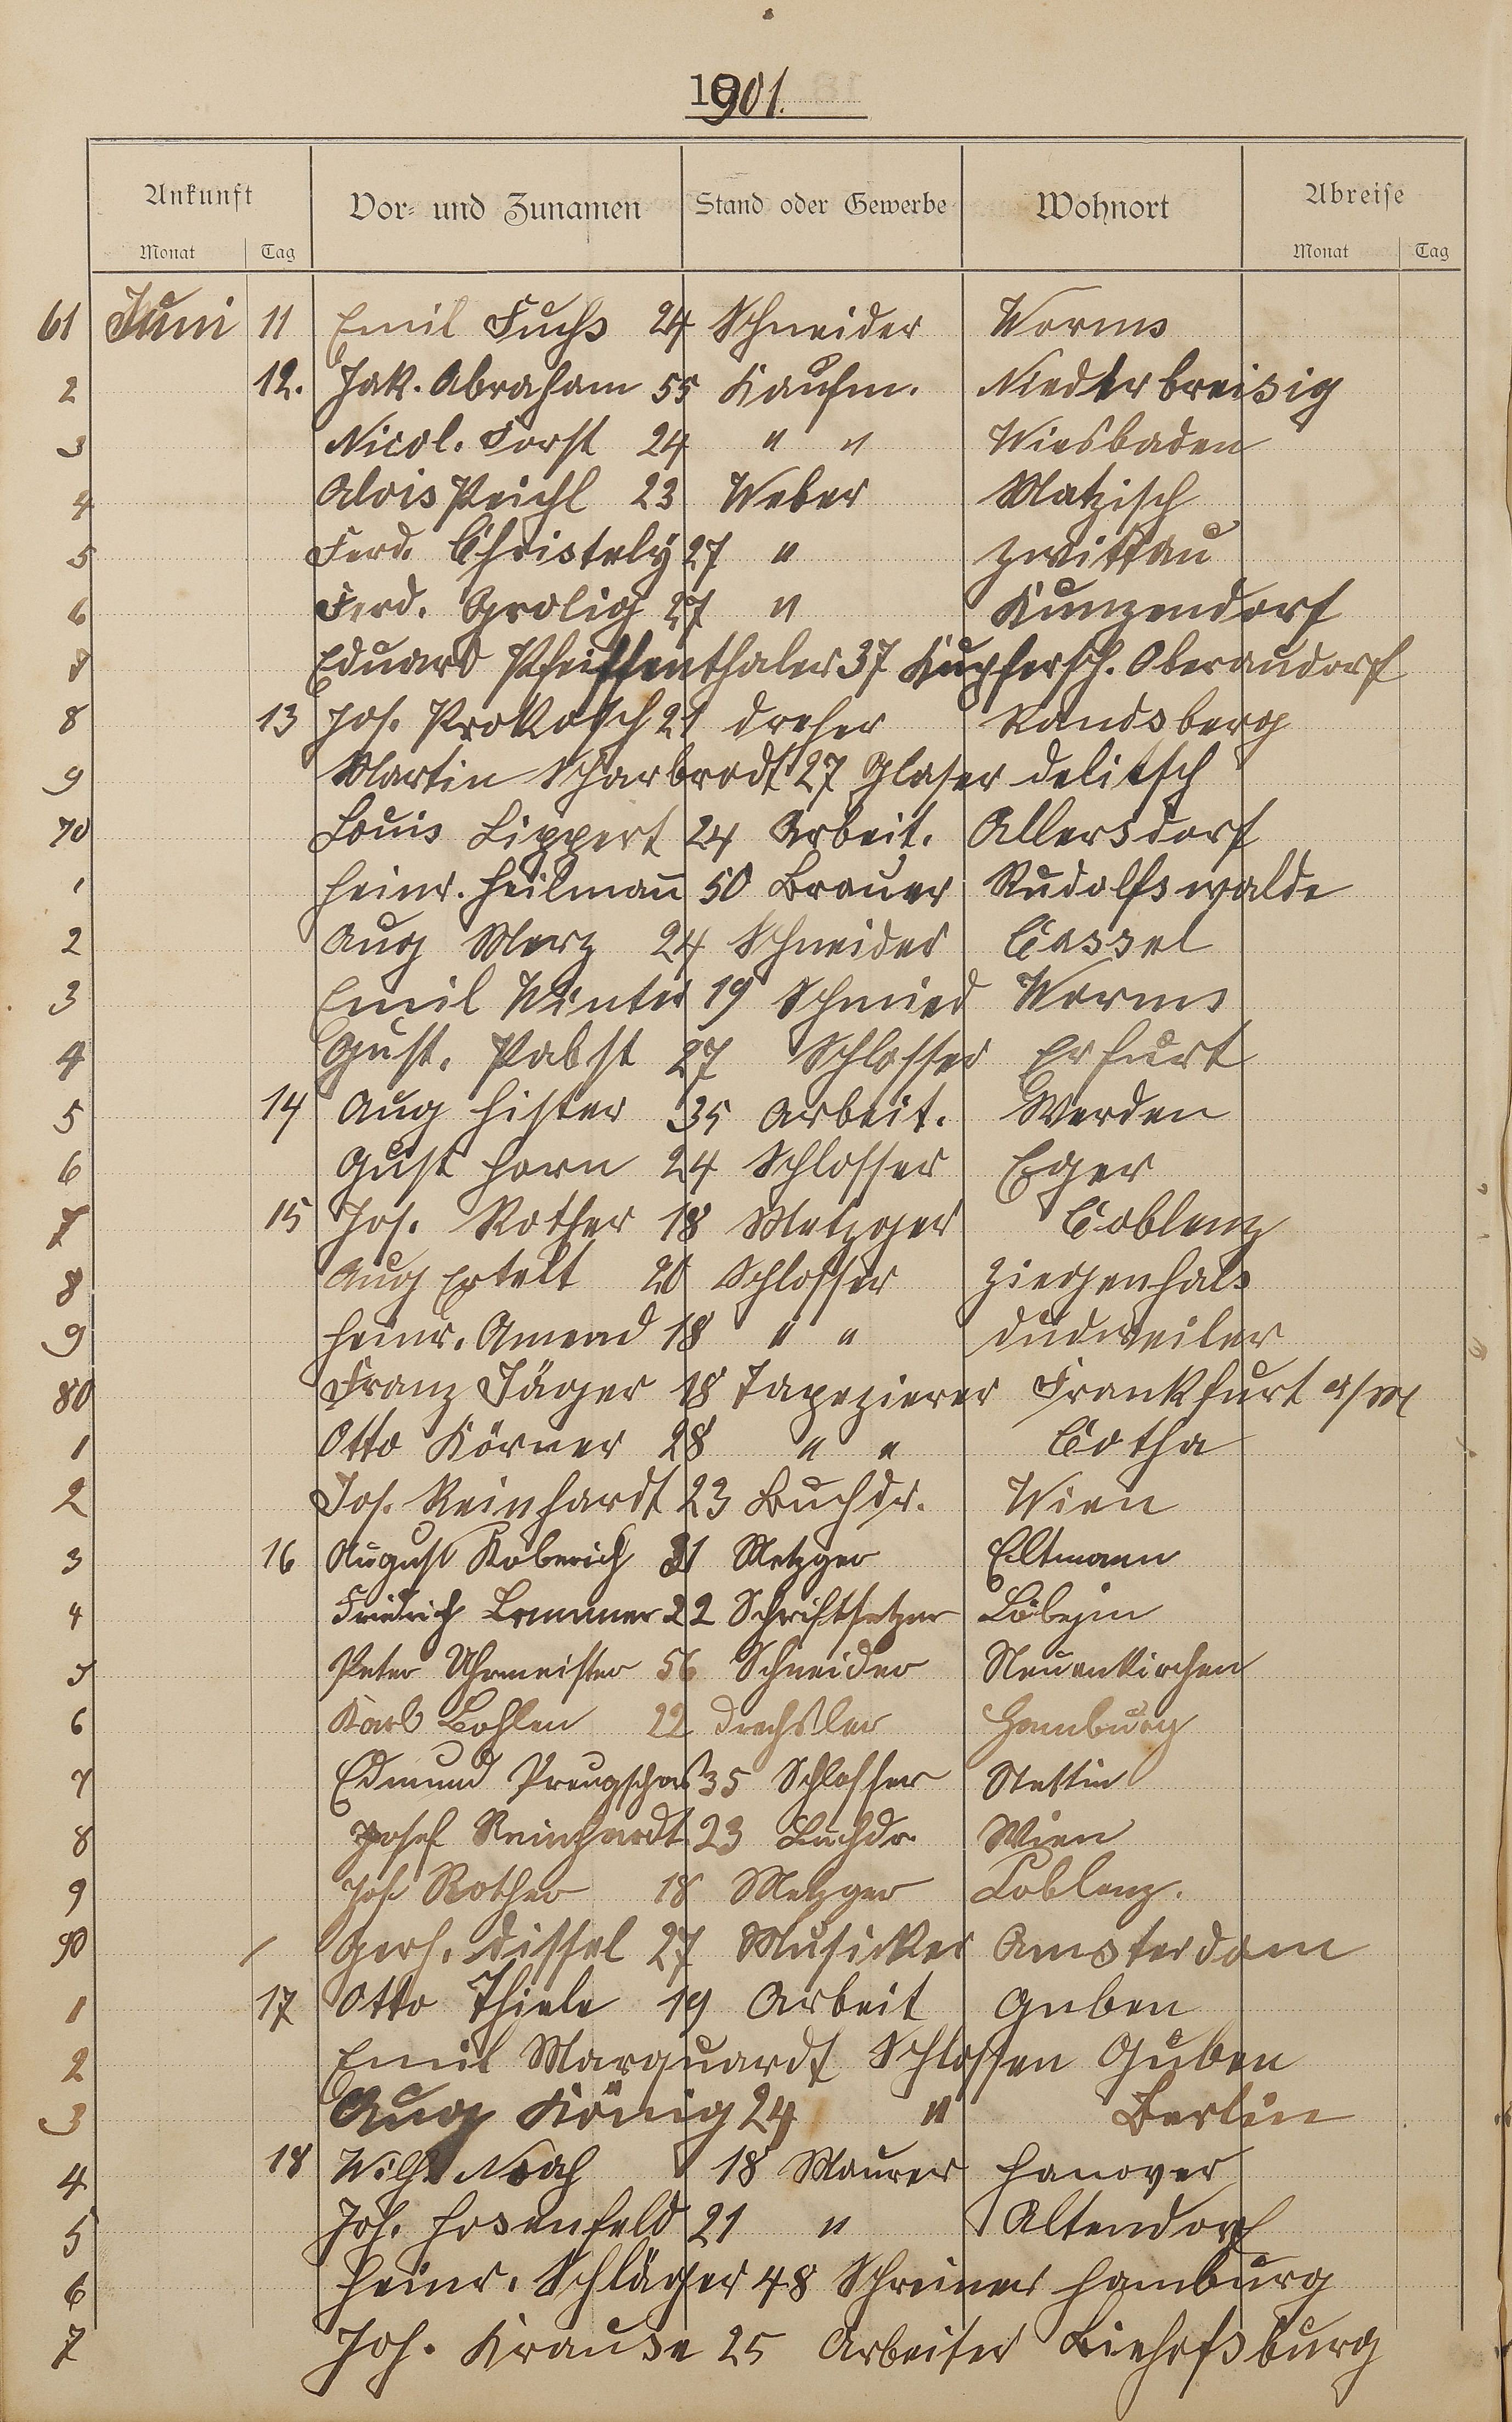 1901.
Ankunft Vor- und Zunamen Stand oder Gewerbe Wohnort Abreise
Monat Tag Monat Tag
61 Juni 11 Emil Fuchs 24 Schneider Worms
2 12. Jak. Abraham 55 Kaufm. Niederbreisig
3 Nicol. Forst 24 " " Wiesbaden
4 Alois Peichl 23 Weber Matzisch
5 Ferd. Christely 27 " Zwittau
6 Ferd. Grolig 27 " Kunzendorf
7 Eduard Pfeiffenthaler 37 Kupfersch. Oberaudorf
8 13 Jos. Prokosch 21 Dreher Landsberg
9 Martin Scharbrodt 27 Glaser Delitsch
70 Louis Lippert 24 Arbeit. Allersdorf
1 Heinr. Heilmann 50 Brauer Rudolfswalde
2 Aug Merz 24 Schneider Cassel
3 Emil Winter 19 Schmied Worms
4 Gust. Pabst 27 Schlosser Erfurt
5 14 Aug Hister 35 Arbeit. Werden
6 Gust Horn 24 Schlosser Eger
7 15 Jos. Rother 18 Metzger Coblenz
8 Aug Ertelt 20 Schlosser Ziegenhals
9 Heinr. Amend 18 " " Dudweiler
80 Franz Jäger 18 Tapezierer Frankfurt a/M
1 Otto Körner 28 " " Gotha
2 Jos. Reinhardt 23 Buchdr. Wien
3 16 August Köberich 31 Metzger Eltmann
4 Friedrich Lemmer 22 Schriftsetzer Löbejün
5 Peter Uhrmeister 56 Schneider Neuenkirchen
6 Karl Bohlen 22 Drechsler Hamburg
7 Edmund 35 Schlosser Stettin
8 Josef Reinhardt 23 Buchdr Wien
9 Jos Rother 18 Metzger Coblenz.
90 Gerh. Dissel 27 Musicker Amsterdam
1 17 Otto Thiele 19 Arbeit Guben
2 Emil Marquardt Schlossen Guben
3 Aug König 24 " Berlin
4 18 Wilh. Noah 18 Maurer Hanover
5 Joh. Hosenfeld 21 " Altendorf
6 Heinr. Schläger 48 Schreiner Hamburg
7 Joh. Krause 25 Arbeiter Biehofsburg